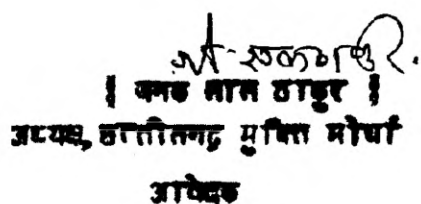 [ जनक लाल ठाकुर ]
अध्यक्ष, छत्तीसगढ़ मुक्ति मोर्चा
आवेदक